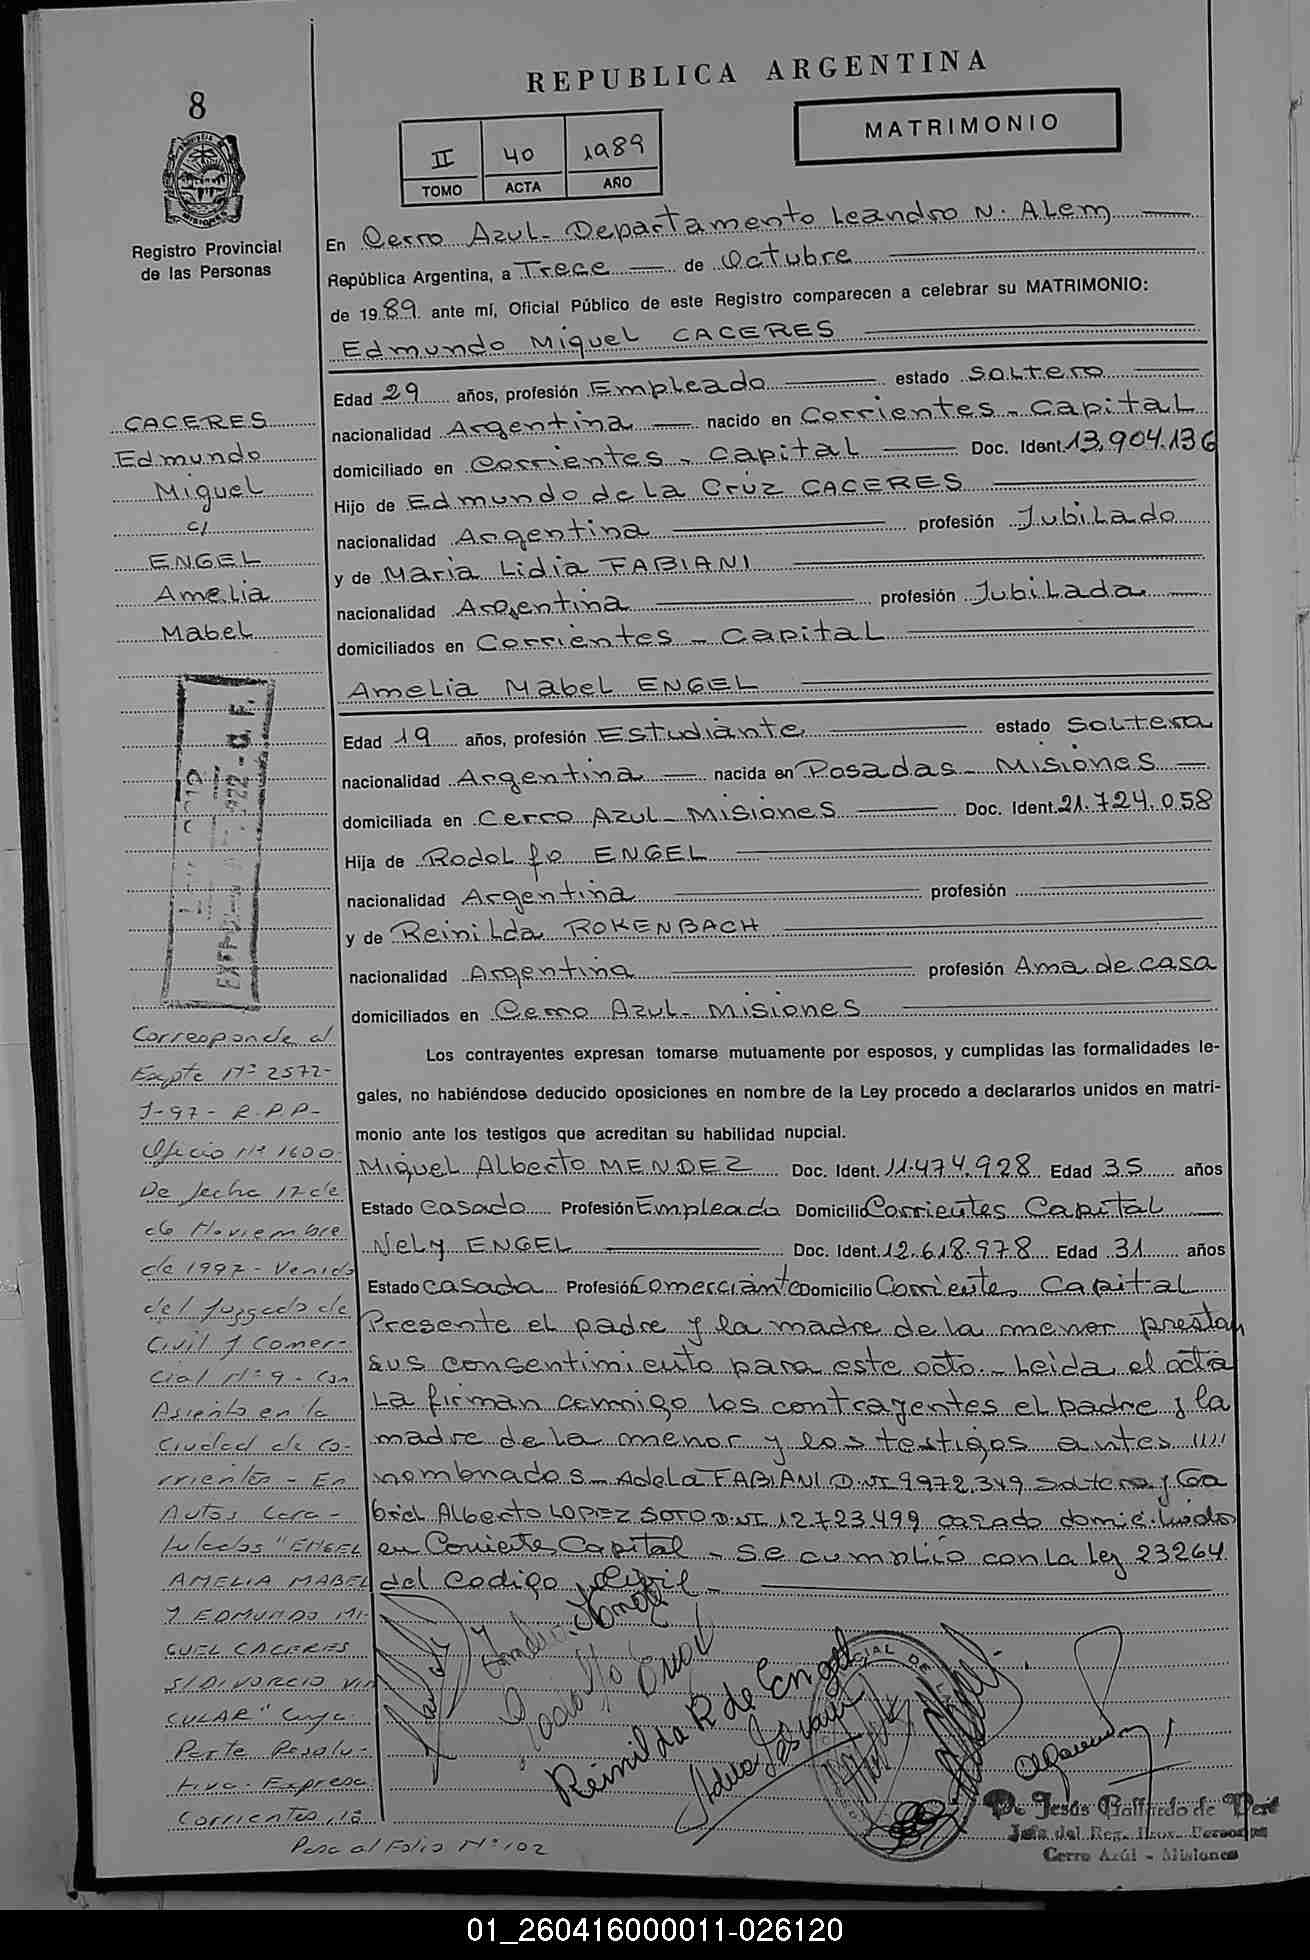 REPUBLICA ARGENTINA
8
MATRIMONIO
II 40 1989
TOMO ACTA AÑO
MISIONES
Registro Provincial
de las Personas
En Cerro Azul - Departamento Leandro N. Alem
República Argentina, a Trece de Octubre
de 1989 ante mí, Oficial Público de este Registro comparecen a celebrar su MATRIMONIO:
Edmundo Miguel CACERES
Edad 29 años, profesión Empleado estado Soltero
nacionalidad Argentina nacido en Corrientes - Capital
domiciliado en Corrientes - Capital Doc. Ident. 13.904.136
Hijo de Edmundo de la Cruz CACERES
nacionalidad Argentina profesión Jubilado
y de Maria Lidia FABIANI
nacionalidad Argentina profesión Jubilada
domiciliados en Corrientes - Capital
Amelia Mabel ENGEL
Edad 19 años, profesión Estudiante estado Soltera
nacionalidad Argentina nacida en Posadas - Misiones
domiciliada en Cerro Azul - Misiones Doc. Ident. 21.724.058
Hija de Rodolfo ENGEL
nacionalidad Argentina profesión
y de Reinilda ROKENBACH
nacionalidad Argentina profesión Ama de casa
domiciliados en Cerro Azul - Misiones
Los contrayentes expresan tomarse mutuamente por esposos, y cumplidas las formalidades le-
gales, no habiéndose deducido oposiciones en nombre de la Ley procedo a declararlos unidos en matri-
monio ante los testigos que acreditan su habilidad nupcial.
Miguel Alberto MENDEZ Doc. Ident. 11.474.928 Edad 35 años
Estado Casado Profesión Empleado Domicilio Corrientes Capital
Nely ENGEL Doc. Ident. 12.618.978 Edad 31 años
Estado Casada Profesión Comerciante Domicilio Corrientes Capital
Presente el padre y la madre de la menor prestan
sus consentimiento para este acto - Leida el acta
La firman conmigo los contrayentes el padre y la
madre de la menor y los testigos antes
nombrados - Adela FABIANI D.NI 9972.349 soltera y Ga
briel Alberto LOPEZ SOTO D.NI 12.723.499 casado domiciliados
en Corrientes Capital - Se cumplio con la Ley 23264
del Codigo Civil -
CACERES
Edmundo
Miguel
c/
ENGEL
Amelia
Mabel
Corresponde al
Expte Nº 2572-
J-97 - R.P.P-
Oficio Nº 1600-
De fecha 17 de
de Noviembre
de 1997 - Venido
del Juzgado de
Civil y Comer-
cial Nº 9 - Con
Asiento en la
Ciudad de Co-
rrientes - En
Autos Cara-
tulados "ENGEL
AMELIA MABEL
Y EDMUNDO MI-
GUEL CACERES
S/DIVORCIO VIN
CULAR" Cuya
Parte Resolu-
tiva Expresa:
Corrientes, 10
Pasa al Folio Nº 102
Rodolfo Engel
Reinilda R de Engel
Adela Fabiani
De Jesús Gallardo de
Jefa del Reg. Prov. Personas
Cerro Azúl - Misiones
01_260416000011-026120